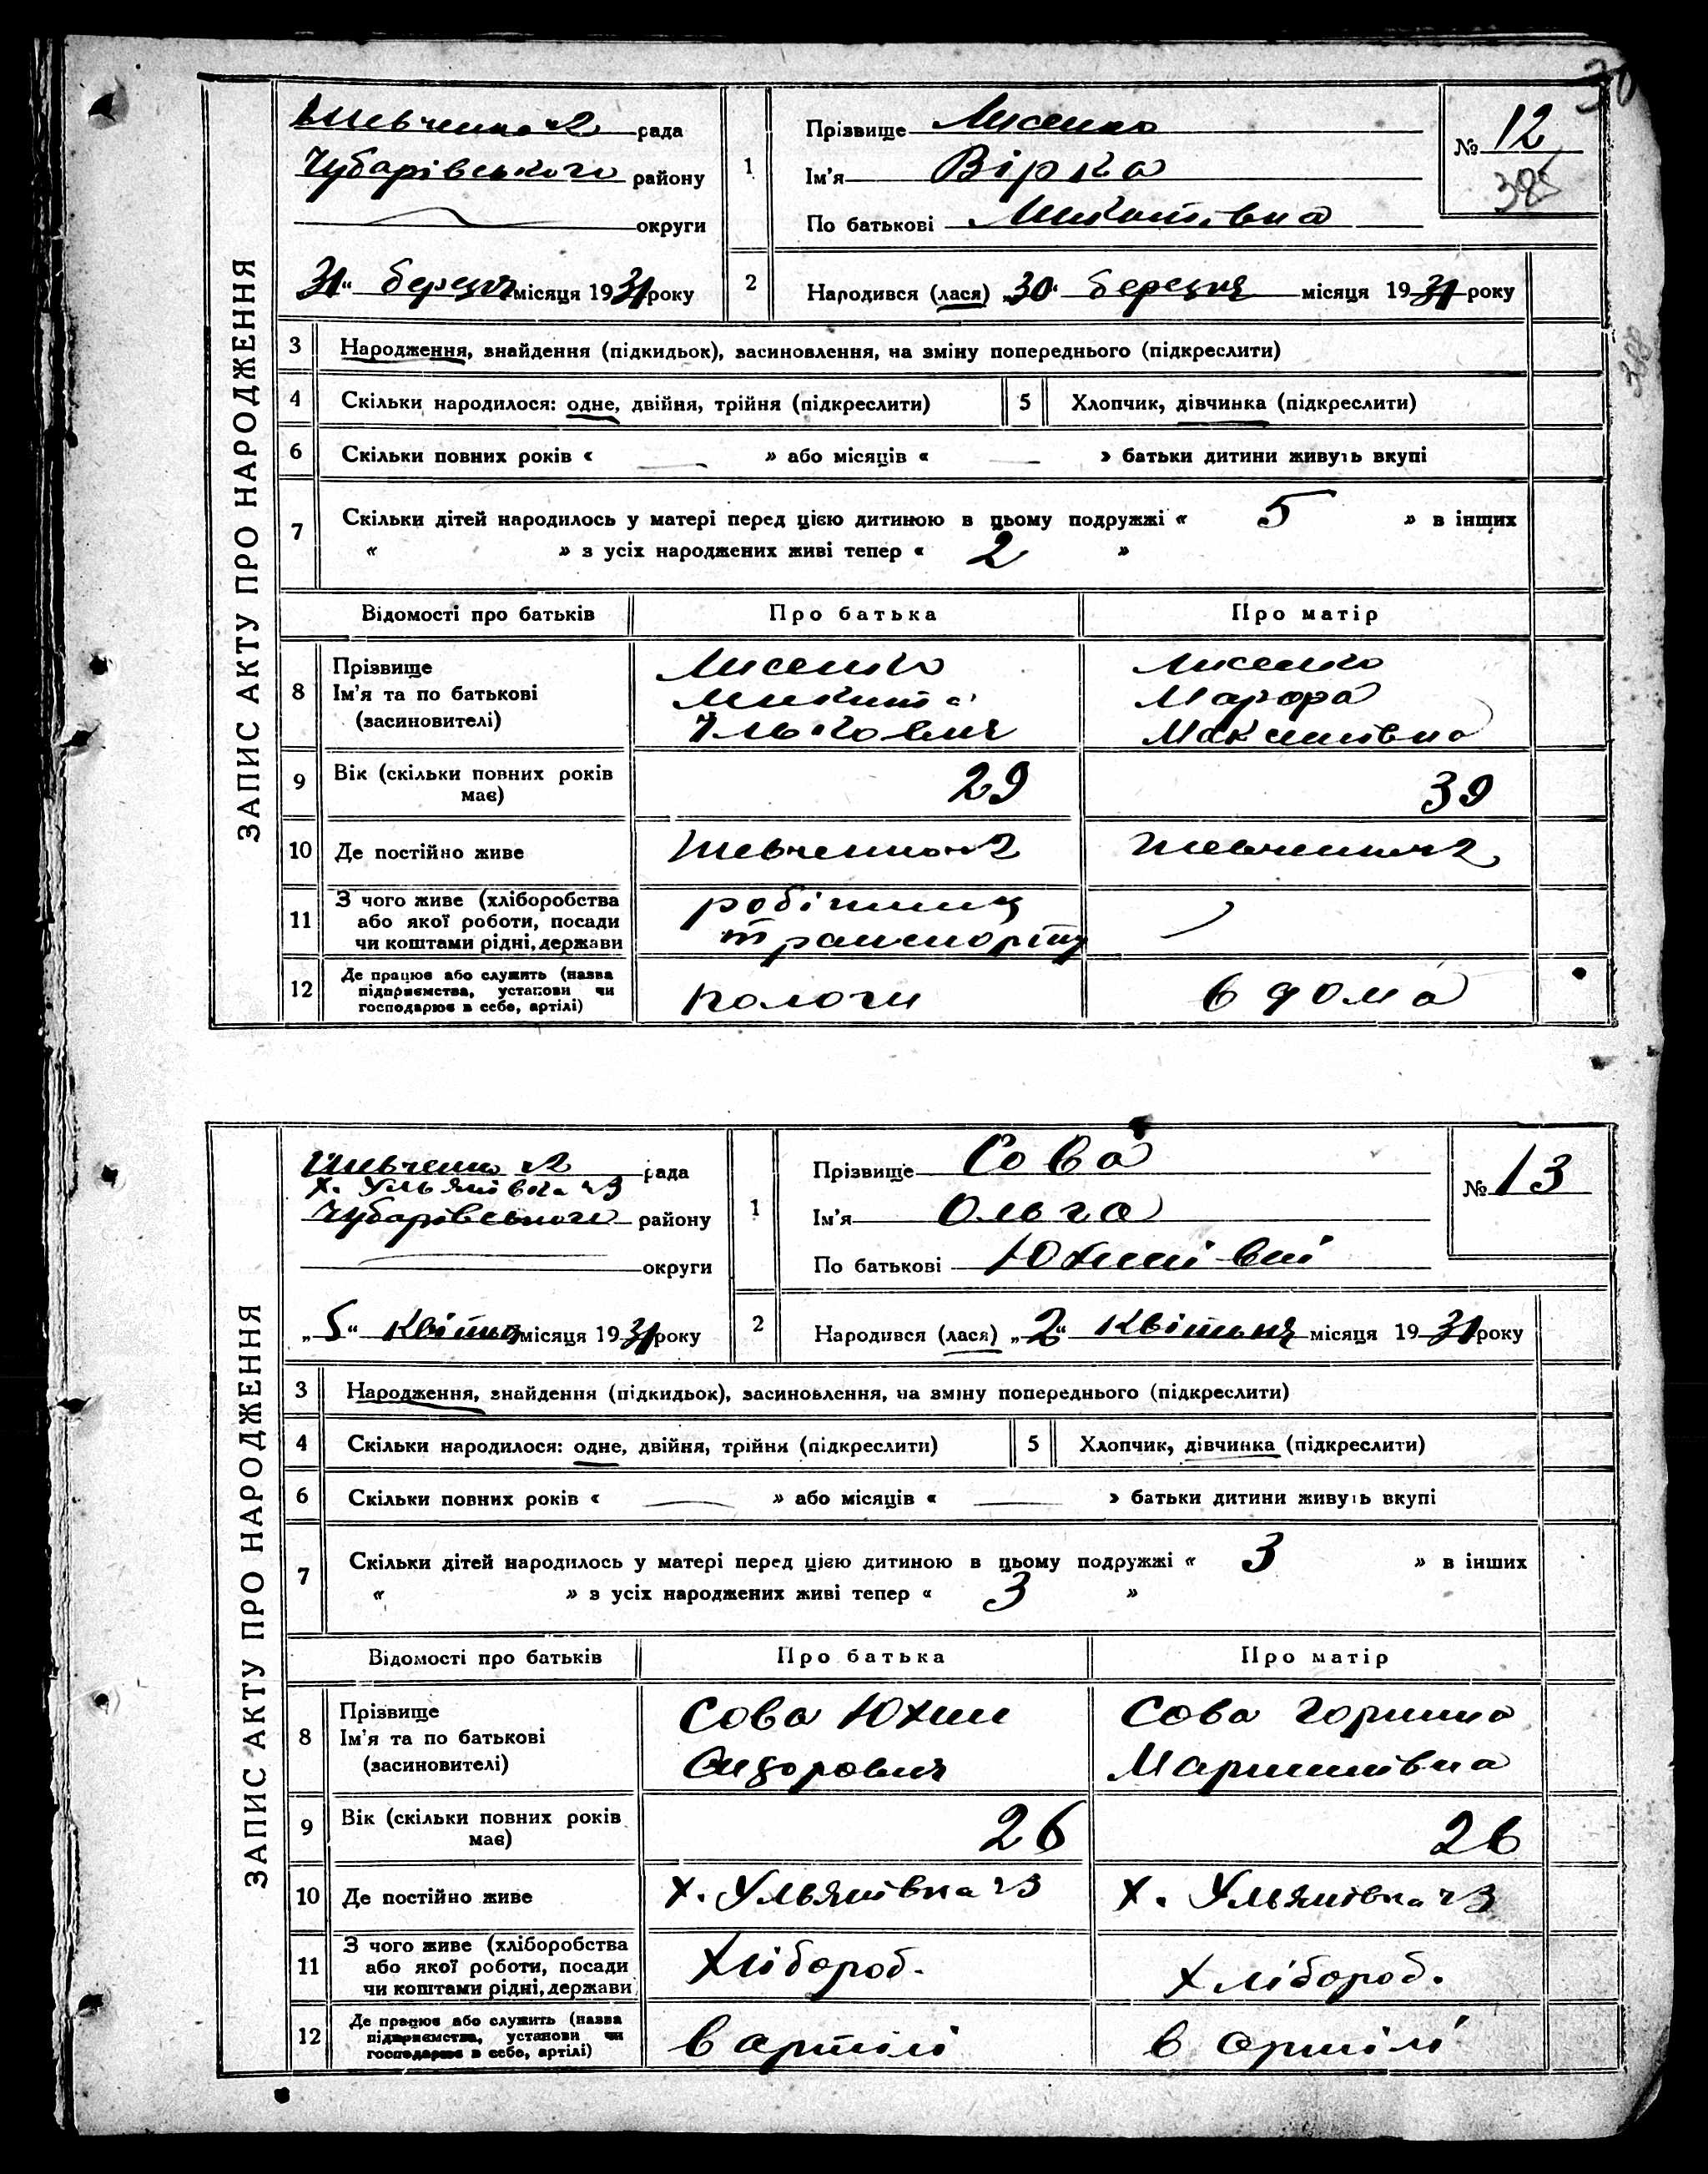 30
ЗАПИС АКТУ ПРО НАРОДЖЕННЯ
Шевченко №2 рада
Чубарівського району
округи
31 березня місяця 1931 року
1
Прізвище Лисенко
Ім'я Вірка
По батькові Микитівна
№ 12
385
2
Народився (лася) „30“ березня місяця 1931 року
388
3 Народження, знайдення (підкидьок), засиновлення, на зміну попереднього (підкреслити)
4 Скільки народилося: одне, двійня, трійня (підкреслити) 5 Хлопчик, дівчинка (підкреслити)
6 Скільки повних років « — » або місяців « — » батьки дитини живуть вкупі
7 Скільки дітей народилось у матері перед цією дитиною в цьому подружжі « 5 » в інших
« » з усіх народжених живі тепер « 2 »
Відомості про батьків Про батька Про матір
8 Прізвище Ім'я та по батькові (засиновителі)
Лисенко Микита Ількович
Лисенко Мархва Максимівна
9 Вік (скільки повних років має) 29 39
10 Де постійно живе Шевченко №2 Шевченко №2
11 З чого живе (хліборобства або якої роботи, посади чи коштами рідні, держави
робітник транспорту
12 Де працює або служить (назва підприємства, установи чи господарює в себе, артілі)
пологи в дома
ЗАПИС АКТУ ПРО НАРОДЖЕННЯ
Шевченко №2 рада
х. Ульянівка ч3
Чубарівського району
округи
„5“ квітня місяця 1931 року
1
Прізвище Сова
Ім'я Ольга
По батькові Юхимівні
№ 13
2
Народився (лася) „2“ квітьня місяця 1931 року
3 Народження, знайдення (підкидьок), засиновлення, на зміну попереднього (підкреслити)
4 Скільки народилося: одне, двійня, трійня (підкреслити) 5 Хлопчик, дівчинка (підкреслити)
6 Скільки повних років « — » або місяців « — » батьки дитини живуть вкупі
7 Скільки дітей народилось у матері перед цією дитиною в цьому подружжі « 3 » в інших
« » з усіх народжених живі тепер « 3 »
Відомості про батьків Про батька Про матір
8 Прізвище Ім'я та по батькові (засиновителі)
Сова Юхим Сидорович
Сова Горпина Мартинівна
9 Вік (скільки повних років має) 26 26
10 Де постійно живе х. Ульянівка ч3 х. Ульянівка ч3
11 З чого живе (хліборобства або якої роботи, посади чи коштами рідні, держави
Хлібороб. хлібороб.
12 Де працює або служить (назва підприємства, установи чи господарює в себе, артілі)
в артілі в артілі